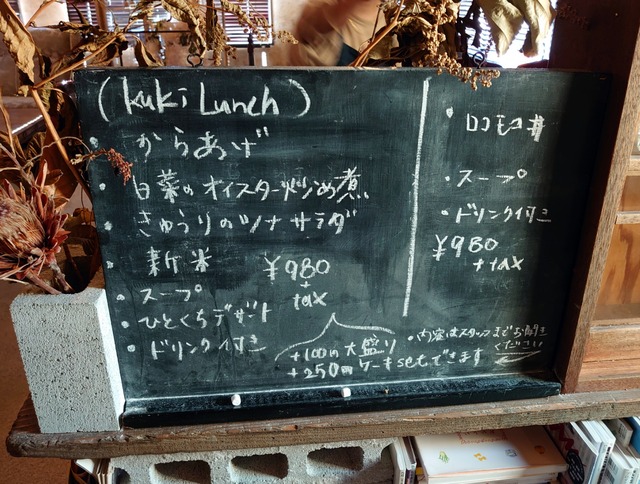 (kuki Lunch)
・からあげ
・白菜のオイスター炒め煮
・きゅうりのツナサラダ
・新米
・スープ
・ひとくちデザート
・ドリンク付き
¥980
+
tax
+100円 大盛り
+250円 ケーキsetもできます
・ロコモコ丼
・スープ
・ドリンク付き
¥980
+tax
・内容はスタッフまでお聞き
ください